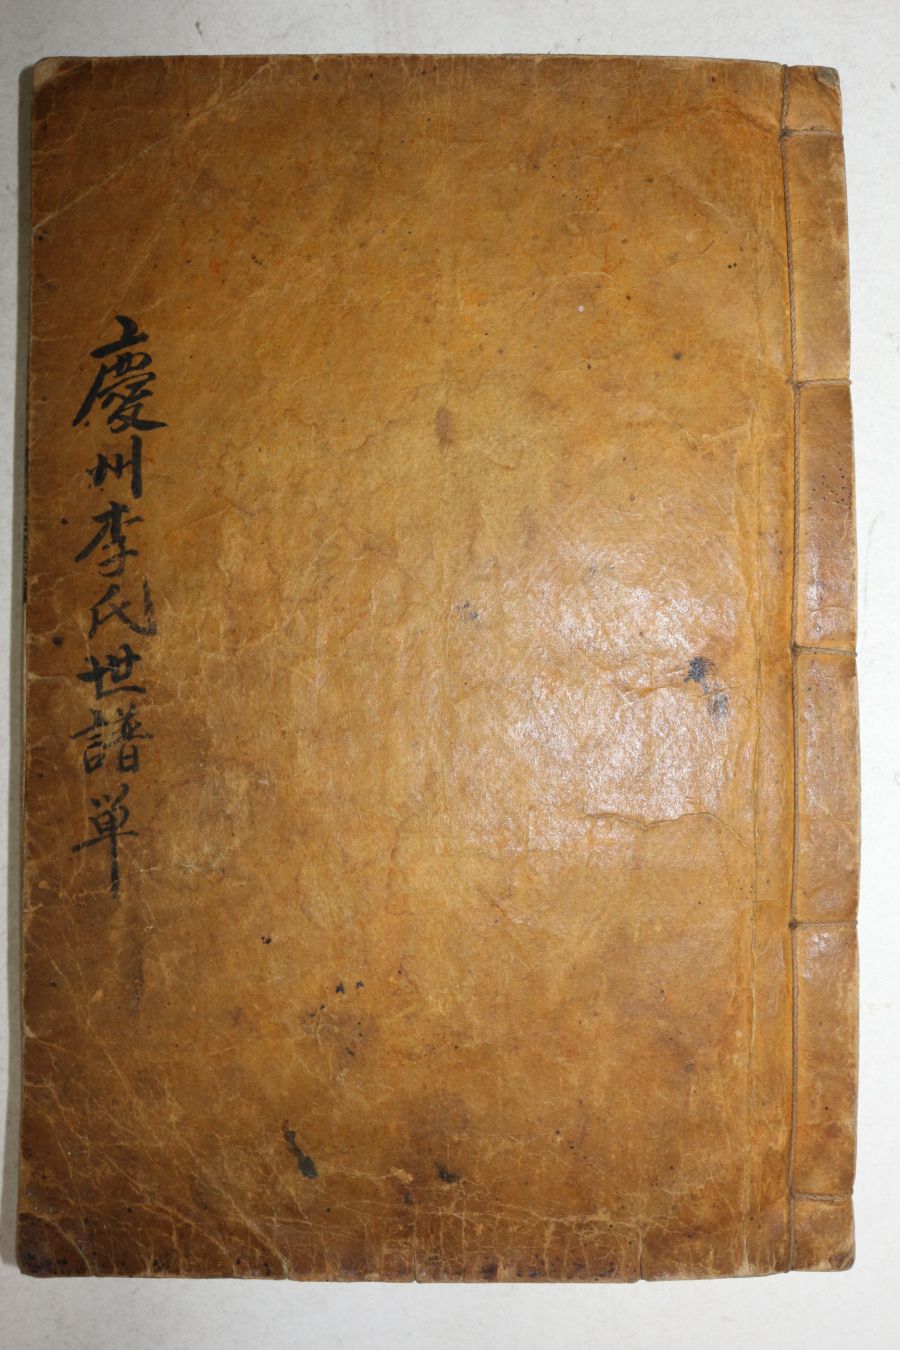 慶州李氏世譜単